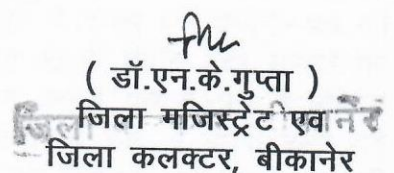 ( डॉ.एन.के.गुप्ता )
जिला मजिस्ट्रेट एव
जिला कलक्टर, बीकानेर